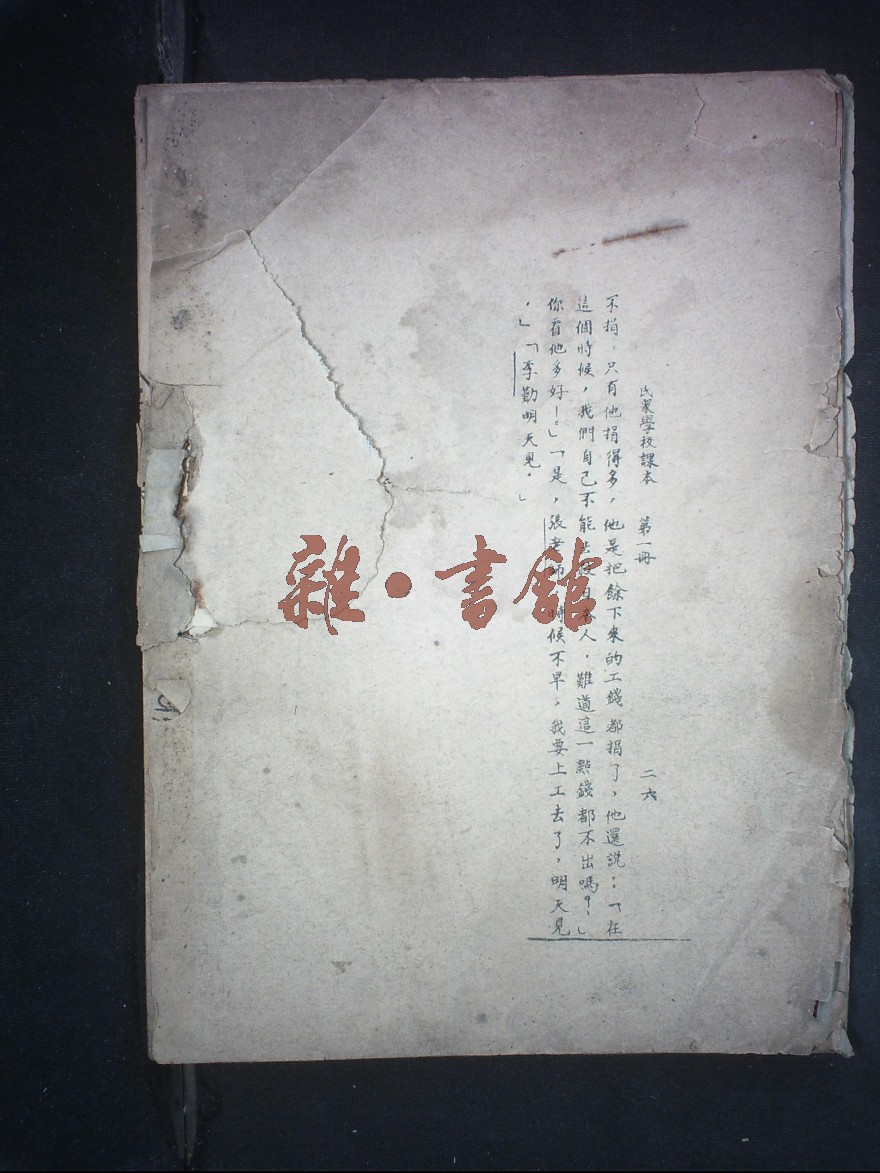 民衆學校課本　第一冊　二六
不捐，只有他捐得多，他是把餘下來的工錢都捐了，他還說：「在
這個時候，我們自己不能 人，難道這一點錢都不出嗎？」
你看他多好！」「是，張老師 時候不早，我要上工去了，明天見
。」「李勤明天見。」
雜·書館